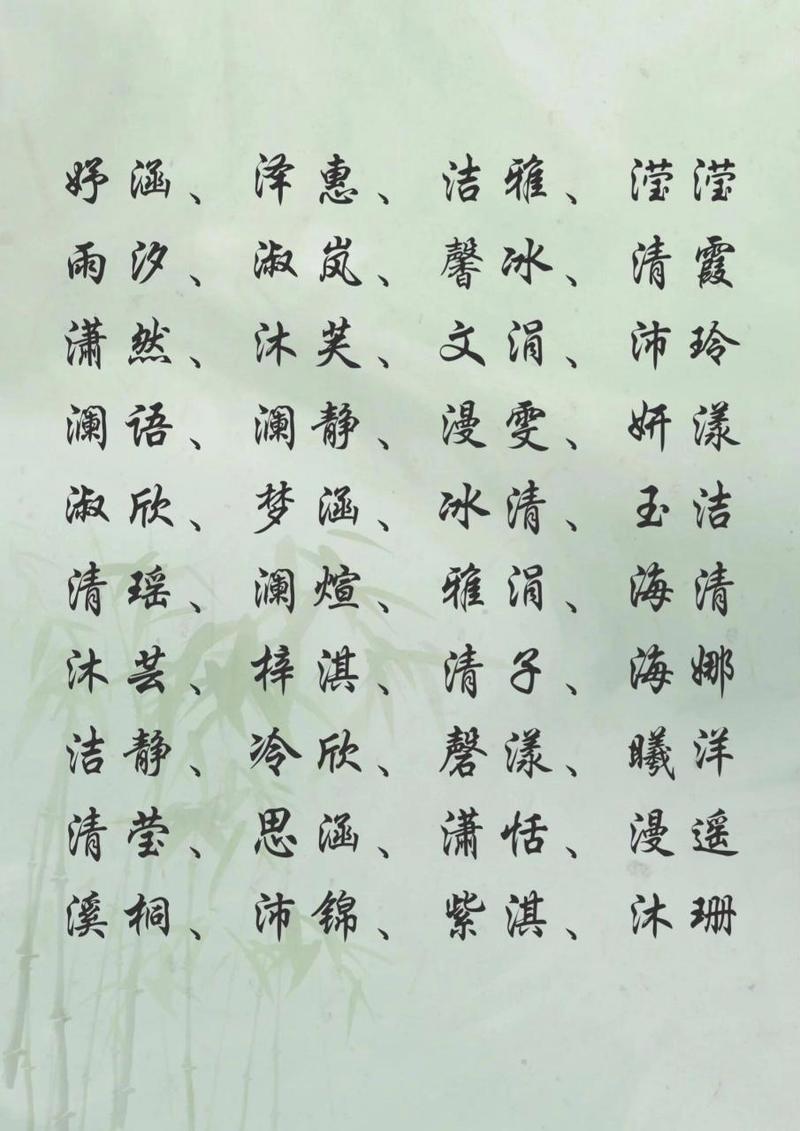 妤涵、泽惠、洁雅、滢滢
雨汐、淑岚、馨冰、清霞
潇然、沐芙、文涓、沛玲
澜语、澜静、漫雯、妍漾
淑欣、梦涵、冰清、玉洁
清瑶、澜煊、雅涓、海清
沐芸、梓淇、清子、海娜
洁静、冷欣、磬漾、曦洋
清莹、思涵、潇恬、漫遥
溪桐、沛锦、紫淇、沐珊